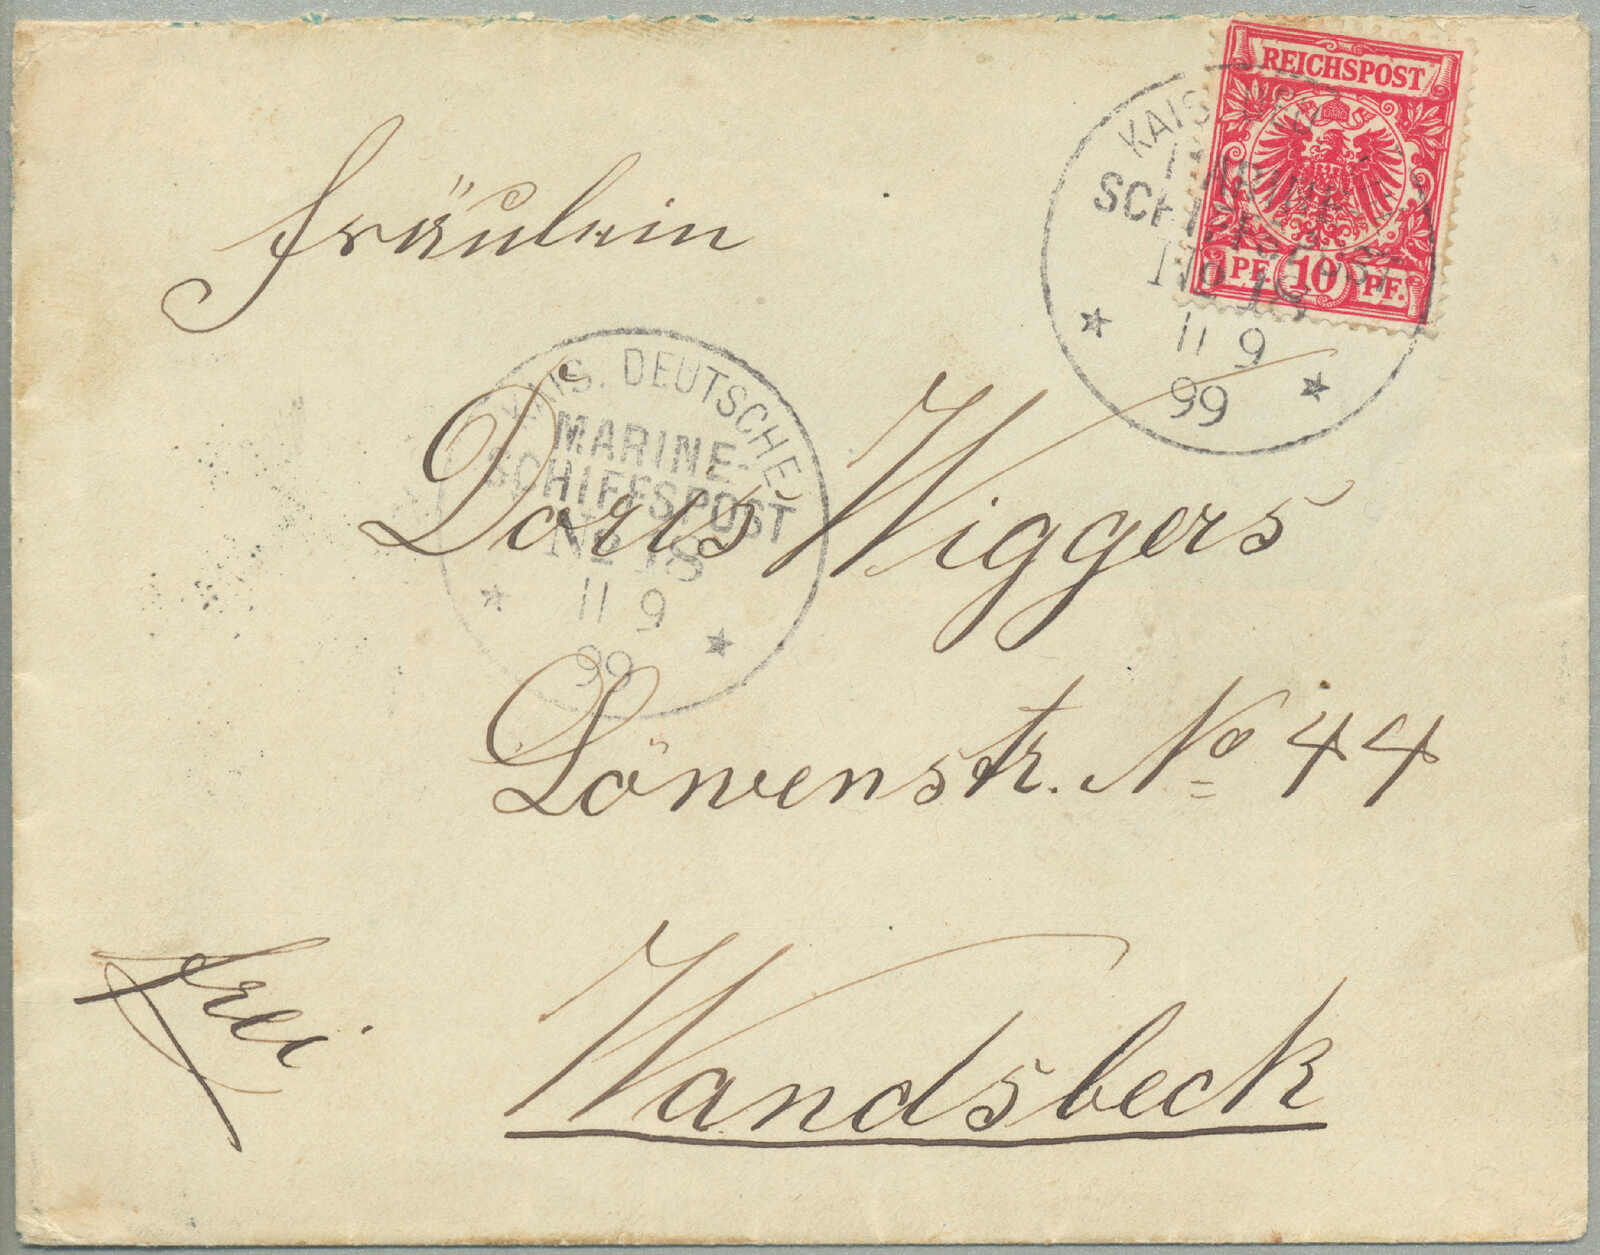 REICHSPOST
PF. 10 PF.
KAIS. DEUTSCHE
MARINE-
SCHIFFSPOST
No 18
11 9
99
Fräulein
KAIS. DEUTSCHE
MARINE-
SCHIFFSPOST
No 18
11 9
99
Doris Wiggers
Löwenstr. No 44
frei
Wandsbeck